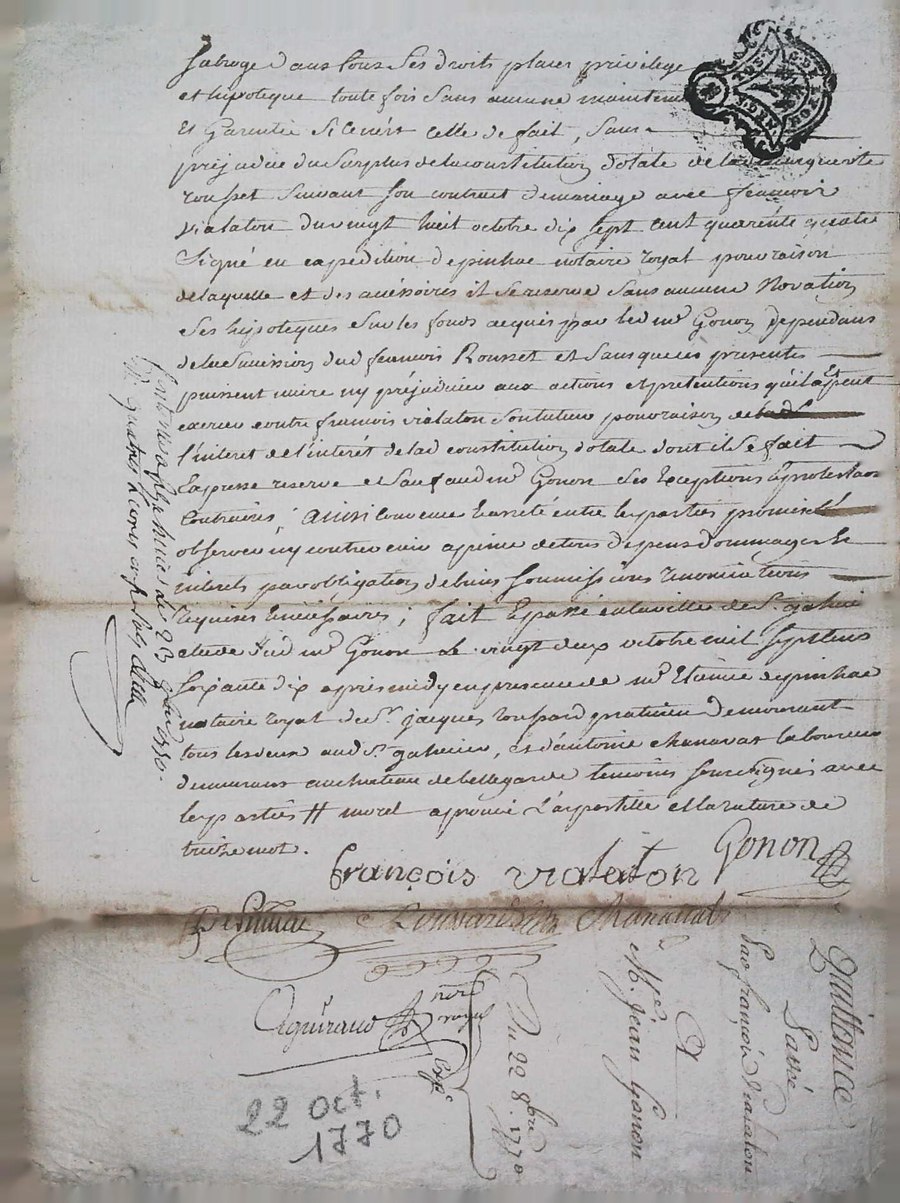 subrogé dans tous ses droit places privilege
et hipoteque toute fois sans aucune mainteni
Et Garentie si cenést celle de fait, sans
prejudice du surplus de la constitution dotale de la marguerite
rousset suivant son contrat de mariage avec francois
vialaton du vingt huit octobre dix sept cent quarente quatre
signé en expedition depinhac notaire royal pour raison
de laquelle et des accessoires il se reserve sans aucune Novation
ses hipoteques sur les fonds acquis par led mr Gonon dependans
de la succession dud francois Rousset et sans que les presentes
puissent nuire ny préjudicier aux actions et pretentions quil a Et peut
exercer contre francois vialaton son tuteur pour raison de
l'interet de l'intérét de lad constitution dotale dont il se fait
Expresse reserve et sauf aud mr Gonon ses Exceptions & protestaon
Contraires, ainsi convenu & arreté entre les parties promis
observer ny contrevenir a peine de tous depens dommages &
interets par obligation de biens soumissions renonciations
requises & necessaires, fait & passé en la ville de St galmier
etude dud mr Gonon le vingt deux octobre mil sept cens
soixante dix après midy en presence de mr Etienne depinhac
notaire royal de sr jacques roussard praticien demeurant
tous les deux aud st galmier, et d'antoine chanavat laboureur
demeurant au chateau de bellegarde temoins soussignés avec
les parties # morel aprouvé l'apostille et la rature de
treize mot.
françois vialaton Gonon
Depinhac Roussard Chanauat
Aguiraud nore royal
Expe
22 oct.
1770
Quittance
Passée
Par françois vialaton
A
Me Jean Gonon
Du 22 8bre 1770